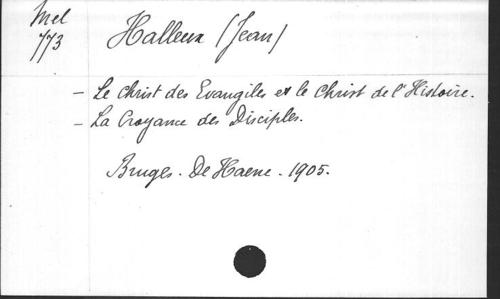 Mel
773
Halleux (Jean)
- Le Christ des Evangiles et le Christ de l'Histoire.
- La Croyance des Disciples.
Bruges. De Haene. 1905.